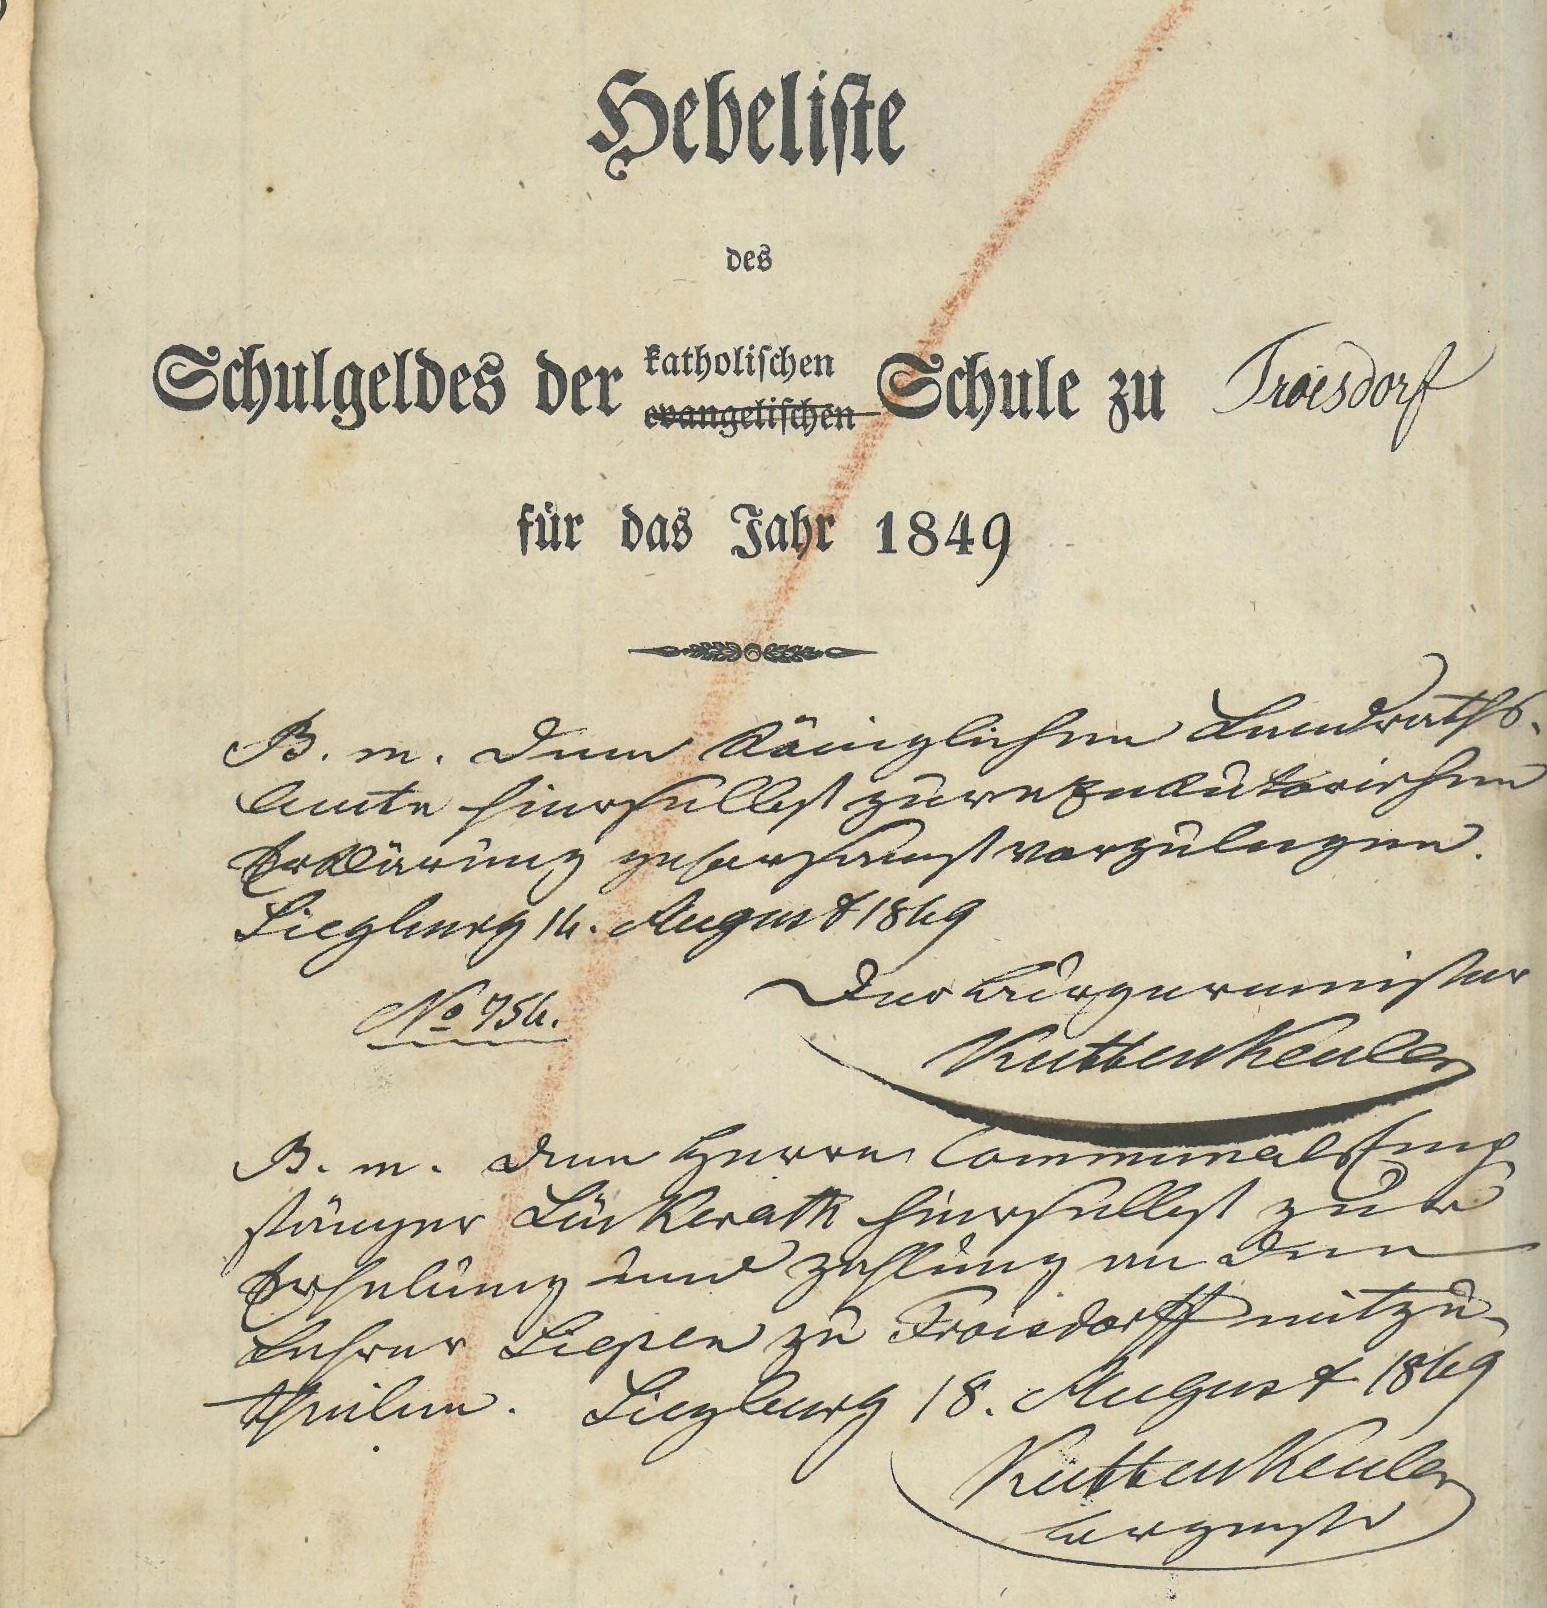 Hebeliste
des
Schulgeldes der katholischen Schule zu Troisdorf
evangelischen
für das Jahr 1849
B. m. dem Königlichen Landraths-
Amte hierselbst zur exekutorischen
Erklärung gehorsamst vorzulegen.
Siegburg 14. August 1849
No 754.
Der Bürgermeister
Küttenkeuler
B. m. dem Herrn Communal Emp
fänger Lückerath hierselbst zur
Erhebung und Zahlung an den
Lehrer zu Troisdorff mitzu-
theilen. Siegburg 18. August 1849
Küttenkeuler